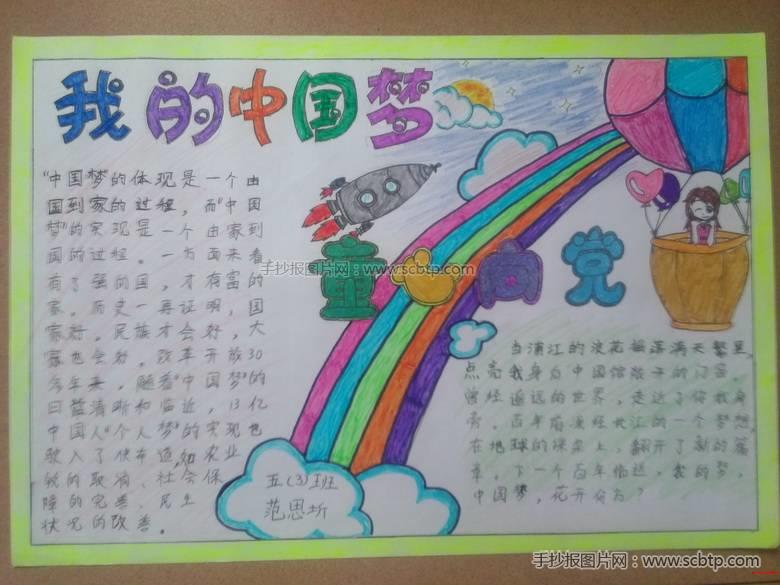 我的中国梦
童心向党
"中国梦的体现是一个由
国到家的过程,而"中国
梦"的实现是一个由家到
国的过程。一方面来看
有了强的国,才有富的
家。历史一再证明,国
家好。民族才会好,大
家也会好。改革开放30
多年来,随着"中国梦"的
日益清晰和临近,13亿
中国人"个人梦"的实现也
驶入了快车道,如农业
税的取消、社会保
障的完善、民生
状况的改善。
当浦江的浪花摇落满天繁星,
点亮我身为中国馆孩子的门
曾经遥远的世界,走近了你我身
旁。百年前演绎长江的一个梦想
在地球的课桌上,翻开了新的篇
章。下一个百年临近,我的梦,
中国梦,花开何方?
五(3)班
范思圻
手抄报图片网:www.scbtp.com
手抄报图片网:www.scbtp.com